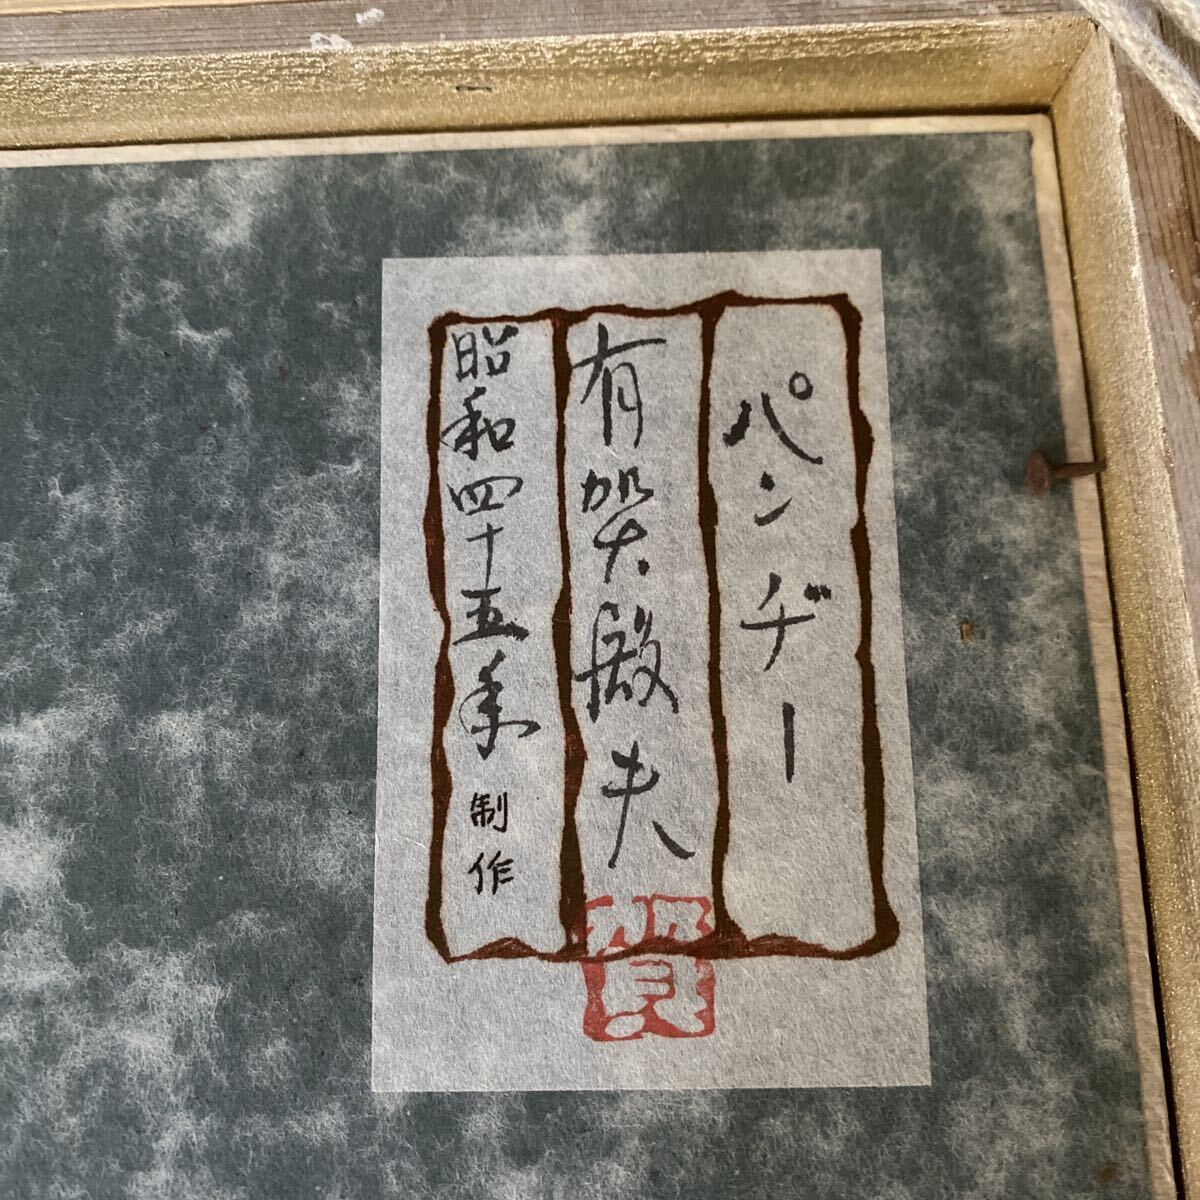 パンヂー
有賀殿夫
昭和四十五年 制作
賀